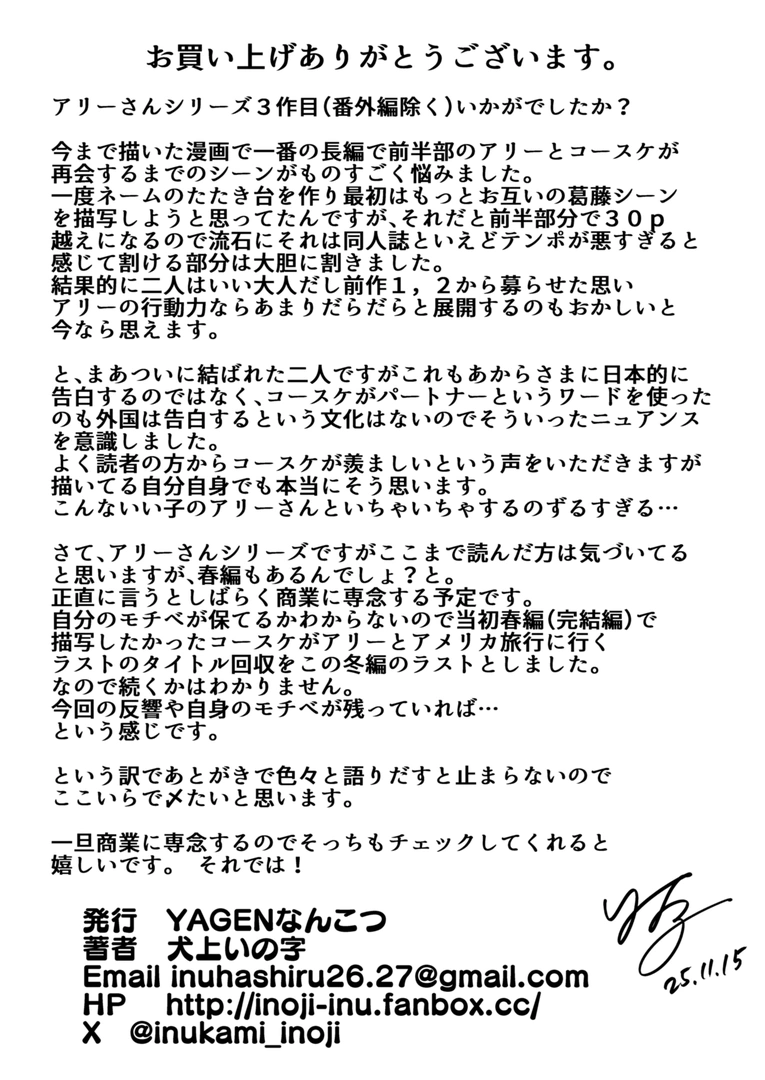 お買い上げありがとうございます。
アリーさんシリーズ３作目(番外編除く)いかがでしたか？
今まで描いた漫画で一番の長編で前半部のアリーとコースケが
再会するまでのシーンがものすごく悩みました。
一度ネームのたたき台を作り最初はもっとお互いの葛藤シーン
を描写しようと思ってたんですが、それだと前半部分で３０ｐ
越えになるので流石にそれは同人誌といえどテンポが悪すぎると
感じて割ける部分は大胆に割きました。
結果的に二人はいい大人だし前作１，２から募らせた思い
アリーの行動力ならあまりだらだらと展開するのもおかしいと
今なら思えます。
と、まあついに結ばれた二人ですがこれもあからさまに日本的に
告白するのではなく、コースケがパートナーというワードを使った
のも外国は告白するという文化はないのでそういったニュアンス
を意識しました。
よく読者の方からコースケが羨ましいという声をいただきますが
描いてる自分自身でも本当にそう思います。
こんないい子のアリーさんといちゃいちゃするのずるすぎる…
さて、アリーさんシリーズですがここまで読んだ方は気づいてる
と思いますが、春編もあるんでしょ？と。
正直に言うとしばらく商業に専念する予定です。
自分のモチベが保てるかわからないので当初春編(完結編)で
描写したかったコースケがアリーとアメリカ旅行に行く
ラストのタイトル回収をこの冬編のラストとしました。
なので続くかはわかりません。
今回の反響や自身のモチベが残っていれば…
という感じです。
という訳であとがきで色々と語りだすと止まらないので
ここいらで〆たいと思います。
一旦商業に専念するのでそっちもチェックしてくれると
嬉しいです。　それでは！
発行　YAGENなんこつ
著者　犬上いの字
Email inuhashiru26.27@gmail.com
HP　http://inoji-inu.fanbox.cc/
X　@inukami_inoji
25.11.15